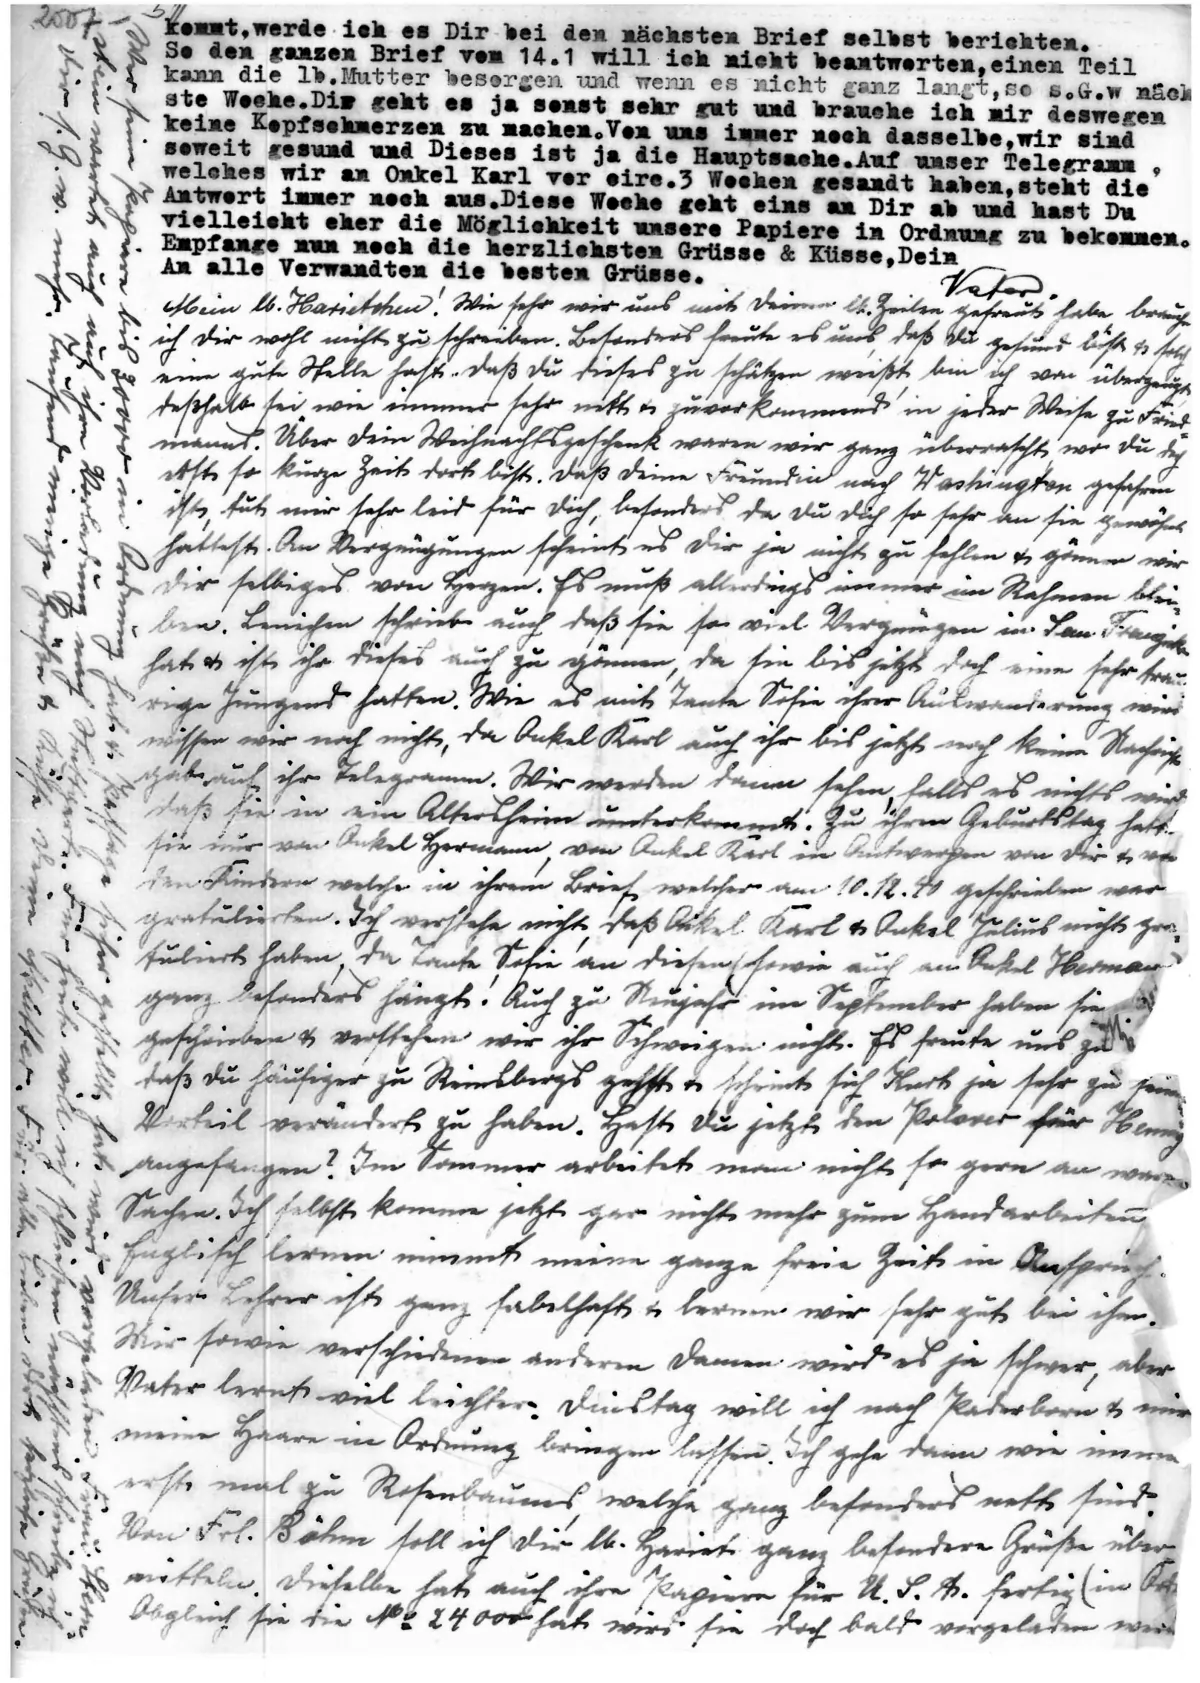 kommt,werde ich es Dir bei den nächsten Brief selbst berichten.
So den ganzen Brief vom 14.1 will ich nicht beantworten,einen Teil
kann die lb.Mutter besorgen und wenn es nicht ganz langt,so s.G.w näch
ste Woche.Dir geht es ja sonst sehr gut und brauche ich mir deswegen
keine Kopfschmerzen zu machen.Von uns immer noch dasselbe,wir sind
soweit gesund und Dieses ist ja die Hauptsache.Auf unser Telegramm ,
welches wir an Onkel Karl vor circ.3 Wochen gesandt haben,steht die
Antwort immer noch aus.Diese Woche geht eins an Dir ab und hast Du
vielleicht eher die Möglichkeit unsere Papiere in Ordnung zu bekommen.
Empfange nun noch die herzlichsten Grüsse & Küsse,Dein
An alle Verwandten die besten Grüsse.
Vater.
Mein lb. Harietchen! Wie sehr wir uns mit Deinen lb. Zeilen gefreut habe brauche
ich dir wohl nicht zu schreiben. Besonders freute es uns daß du gesund bist & solch
eine gute Stelle hast. Daß du dieses zu schätzen weißt bin ich von überzeugt
deßhalb sei wie immer sehr nett & zuvorkommend in jeder Weise zu Fried-
manns. Über dein Weihnachtsgeschenk waren wir ganz überrascht wo du doch
erst so kurze Zeit dort bist. Daß deine Freundin nach Washington gefahren
ist, tut mir sehr leid für dich, besonders da du dich so sehr an sie gewöhnt
hattest. An Vergnügungen scheint es dir ja nicht zu fehlen & gönnen wir
dir selbiges von Herzen. Es muß allerdings immer im Rahmen blei-
ben. Lenichen schrieb auch daß sie so viel Vergnügen in San Franzisko
hat & ist ihr dieses auch zu gönnen, da sie bis jetzt doch eine sehr trau-
rige Jungend hatten. Wie es mit Tante Sofie ihrer Auswanderung wird
wissen wir noch nicht, da Onkel Karl auch ihr bis jetzt noch keine Nachricht
gab auf ihr Telegramm. Wir werden dann sehen, falls es nichts wird
daß sie in ein Altersheim unterkommt. Zu ihren Geburtstag hat
sie nur von Onkel Hermann, von Onkel Karl in Antwerpen von dir & von
den Kindern welche in ihrem Brief, welcher am 10.12.40 geschrieben war
gratulierten. Ich verstehe nicht, daß Onkel Karl & Onkel Julius nicht gra-
tuliert haben, da Tante Sofie an diesen, sowie auch an Onkel Herman
ganz besonders hängt! Auch zu Neujahr im September haben sie
geschrieben & verstehen wir ihr Schweigen nicht. Es freute uns zu
daß du häufiger zu Steinbergs gehst & scheint sich Kurt ja sehr zu seinem
Vorteil verändert zu haben. Hast du jetzt den Polover für Henny
angefangen? Im Sommer arbeitet man nicht so gern an warme
Sachen. Ich selbst komme jetzt gar nicht mehr zum Handarbeiten
Englisch lernen nimmt meine ganze freie Zeit in Anspruch.
Unser Lehrer ist ganz fabelhaft & lernen wir sehr gut bei ihm.
Mir sowie verschiedenen anderen Damen wird es ja schwer, aber
Vater lernt viel leichter. Dinstag will ich nach Paderborn & mir
meine Haare in Ordnung bringen lassen. Ich gehe dann wie immer
erst mal zu Rosenbaums, welche ganz besonders nett sind.
Von Frl. Böhm soll ich dir lb. Hariet ganz besondere Grüße über
mitteln. Dieselbe hat auch ihre Papiere für U.S.A. fertig (in Ord
Obgleich sie die No 24000 hat wird sie doch bald vorgeladen
Ober seine Papiere bis Zowo in Ordnung hat & Passage sicher gestellt hat wird vorgeladen. Frau Stern
auch auf ihre Vorladung nach Stuttgart. Für heute will ich schließen nächstens schreibe ich
dir s. G. w. mehr. tausend innige Grüße & Küsse Deine Mutter.